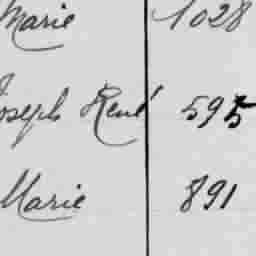 Marie 1028
Joseph René 595
Marie 891